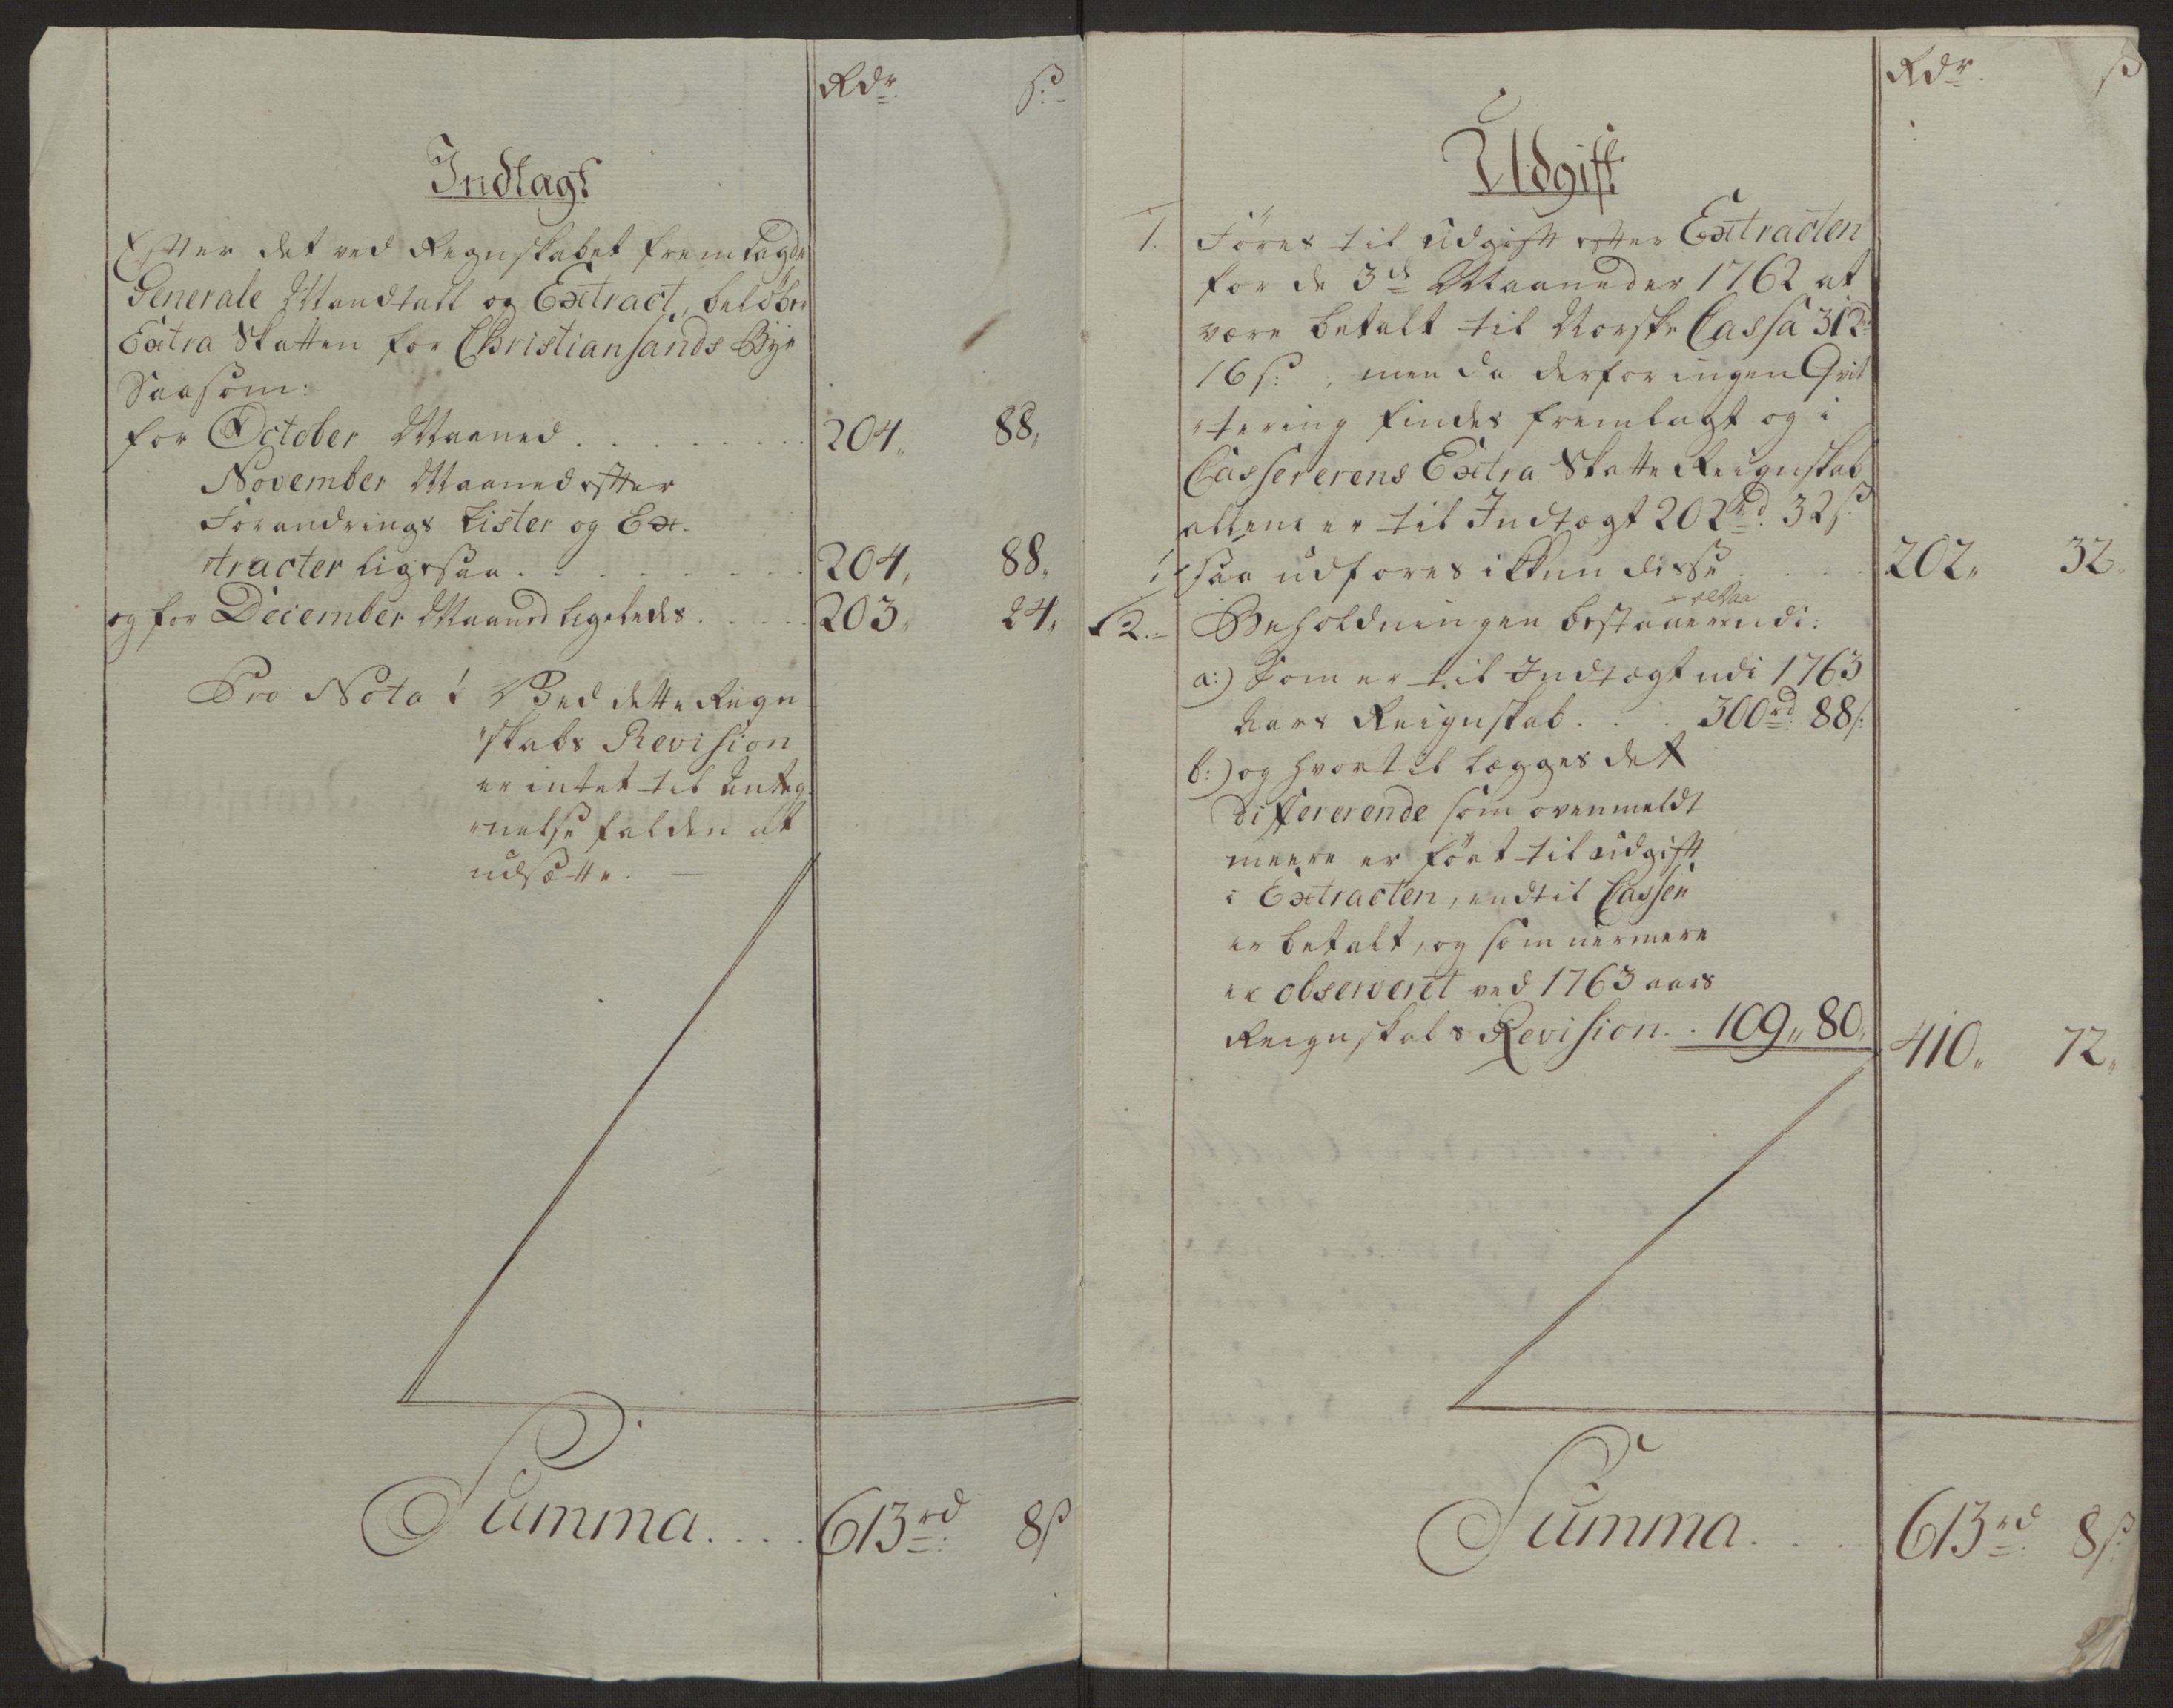 Rdr. ß:
Indtagt
Efter det ved Regnskabet fremlagde
Generale Mandtall og Extract, beløber
Extra Skatten for Christiansands Bye
Saasom:
for October Maaned . . . . . . . . 204„ 88„
November Maaned efter
Forandrings Lister og Ex-
tracter ligesaa . . . . . . . . 204„ 88„
og for December Maaned ligeledes . . . . . 203„ 24„
Pro Nota: Ved dette Regn
skabs Revision
er intet til Anteg-
nelse falden at
udsætte. —
Summa . . . . 613rd: 8ß
Rdr. ß
Udgift
1. Føres til udgift efter Extracten
for de 3de Maaneder 1762 at
være betalt til Norske Cassa 312rd
16ß:, men da derfor ingen Qvit
tering findes fremlagt og i
Cassererens Extra Skatte Reignskab
allene er til Indtægt 202rd: 32ß
saa udføres ikkun disse . . . . 202„ 32„
altsaa
2. Beholdningen bestaaer udi:
a:) Som er til Indtægt udi 1763
Aars Reignskab . . . 300rd: 88ß:
b:) og hvortil lægges det
differerende som ovenmeldt
meere er ført til udgift
i Extracten, end til Cassen
er betalt, og som nermere
er observeret ved 1763 aars
Reignskabs Revision . . 109„ 80„ 410„ 72„
Summa . . . . 613rd: 8ß: